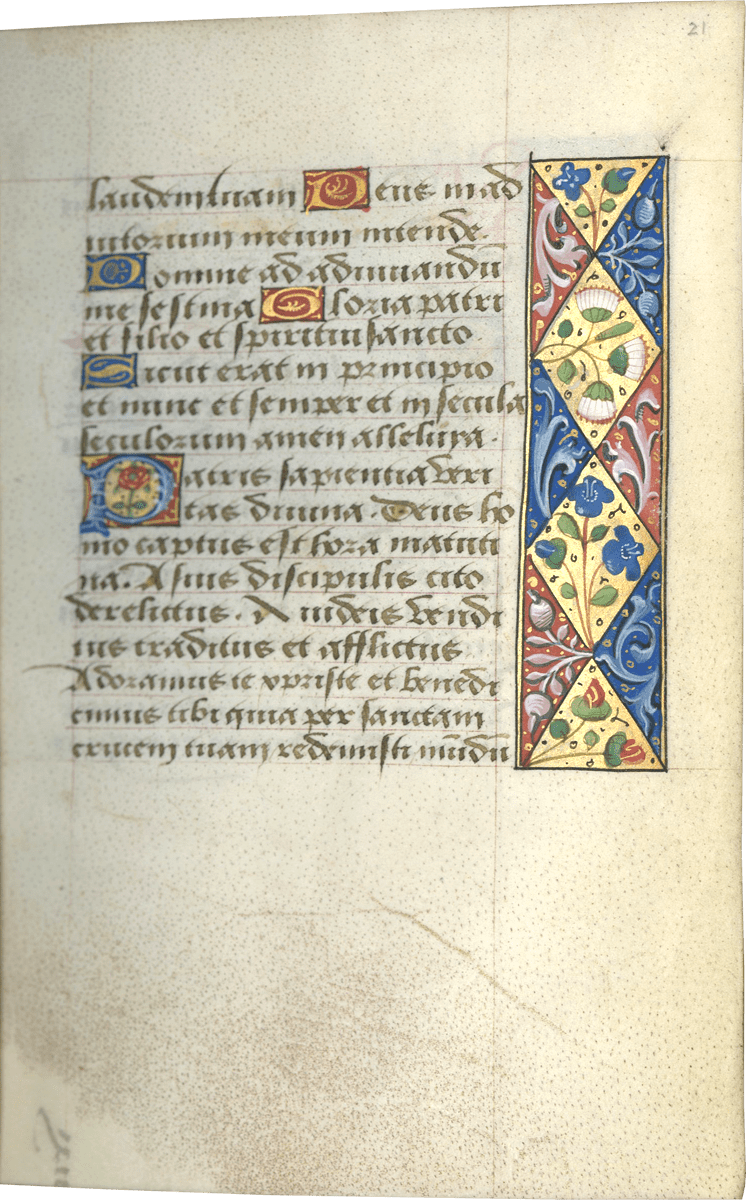 21
laudem tuam Deus in ad
iutorium meum intende.
Domine ad adiuuandū
me festina Gloria patri
et filio et spiritui sancto.
Sicut erat in principio
et nunc et semper et in secula
seculorum amen alleluya.
Patris sapientia veri
tas diuina. Deus ho
mo captus est hora matuti
na. A suis discipulis cito
derelictus. A iudeis vendi
tus traditus et afflictus
Adoramus te xpriste et benedi
cimus tibi quia per sanctam
crucem tuam redemisti mūdū